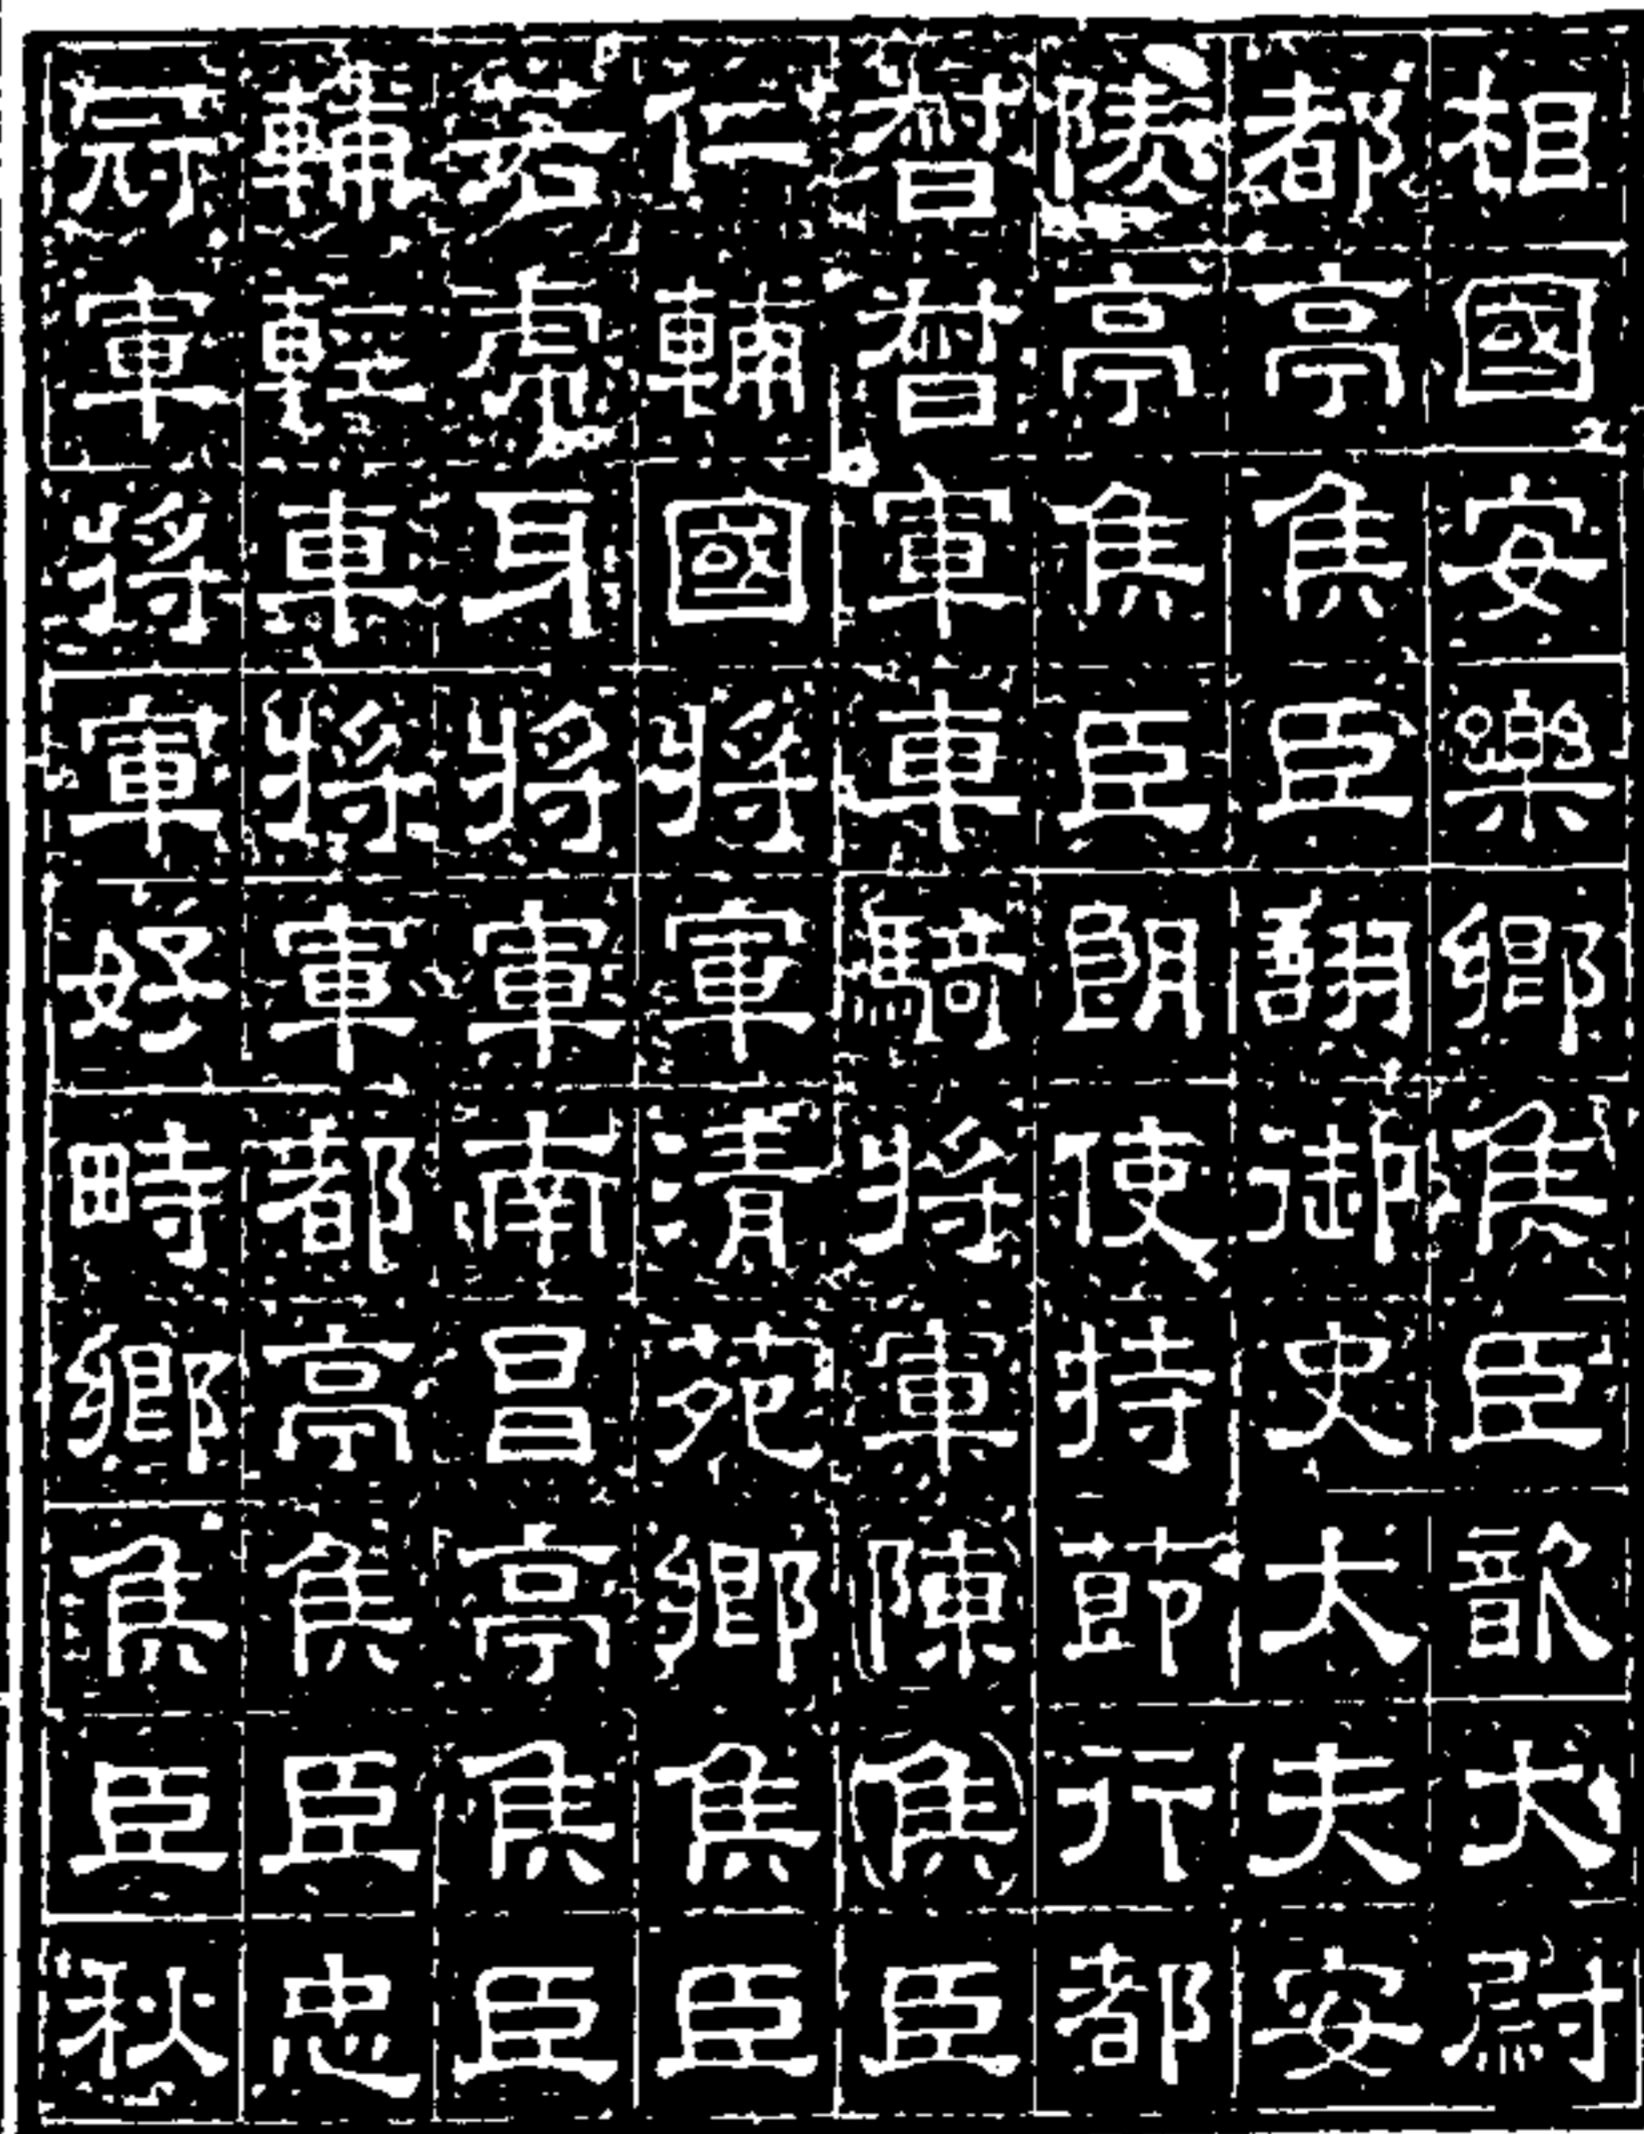 相國安樂鄉侯臣歆大尉
都亭侯臣詡御史大夫安
陵亭侯臣朗使持節行都
督督軍車騎將軍陳侯臣
仁輔國將軍清苑鄉侯臣
若虎牙將軍南昌亭侯臣
輔輕車將軍都亭侯臣忠
冠軍將軍好畤鄉侯臣秋